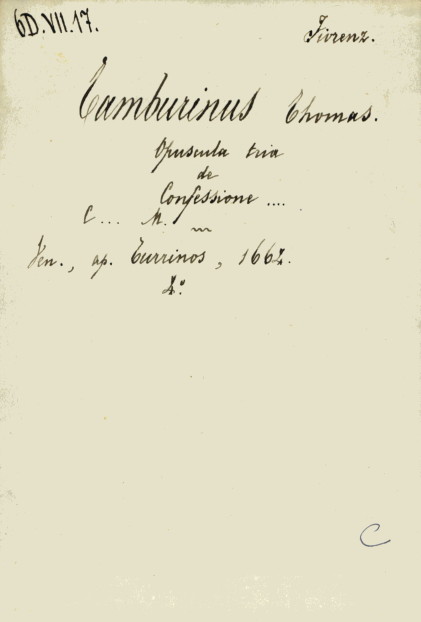 6D.VII.17.
Fiorenz.
Tamburinus Thomas.
Opuscula tria
de
Confessione ....
C... M.
Ven., ap. Turrinos, 1662.
4º
C